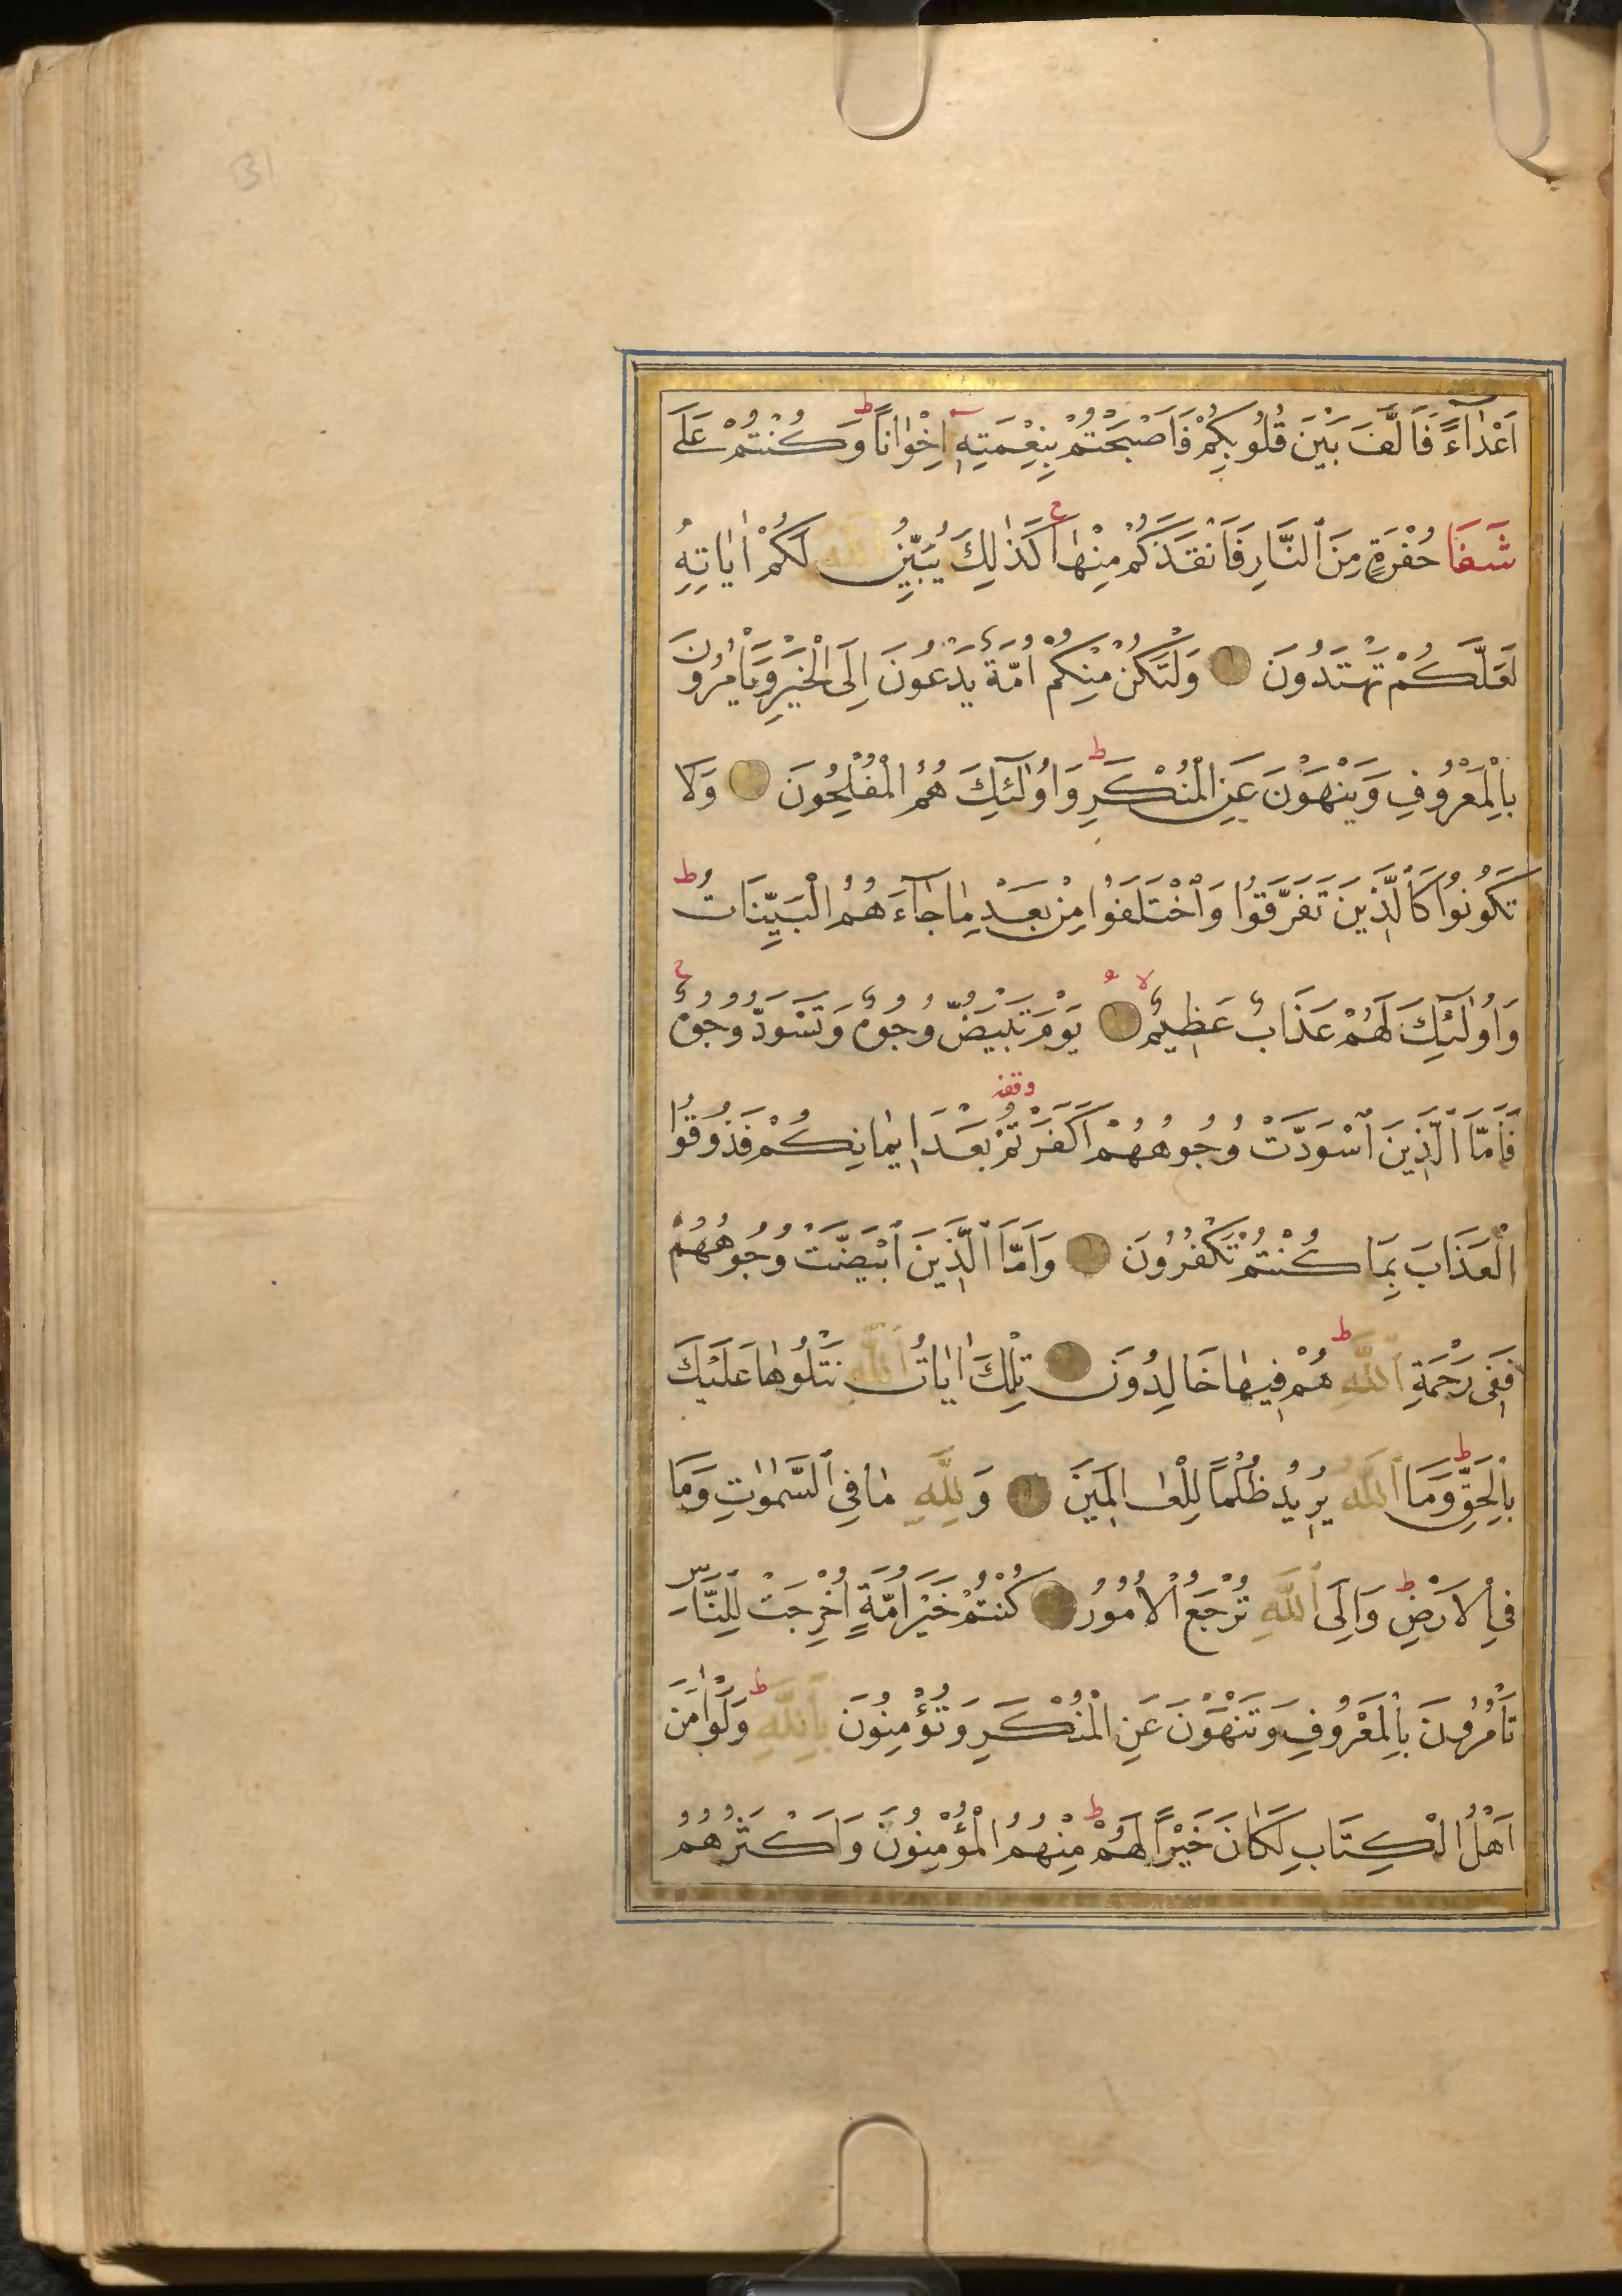 31
اَعْدَٓاءً فَاَلَّفَ بَيْنَ قُلُوبِكُمْ فَاَصْبَحْتُمْ بِنِعْمَتِهِٓ اِخْوَانًاۜ وَكُنْتُمْ عَلٰى
شَفَا حُفْرَةٍ مِنَ النَّارِ فَاَنْقَذَكُمْ مِنْهَاۜ كَذٰلِكَ يُبَيِّنُ اللّٰهُ لَكُمْ اٰيَاتِهِ
لَعَلَّكُمْ تَهْتَدُونَ وَلْتَكُنْ مِنْكُمْ اُمَّةٌ يَدْعُونَ اِلَى الْخَيْرِ وَيَأْمُرُونَ
بِالْمَعْرُوفِ وَيَنْهَوْنَ عَنِ الْمُنْكَرِۜ وَاُولٰٓئِكَ هُمُ الْمُفْلِحُونَ وَلَا
تَكُونُوا كَالَّذِينَ تَفَرَّقُوا وَاخْتَلَفُوا مِنْ بَعْدِ مَا جَٓاءَهُمُ الْبَيِّنَاتُ ط
وَاُولٰٓئِكَ لَهُمْ عَذَابٌ عَظِيمٌ لا يَوْمَ تَبْيَضُّ وُجُوهٌ وَتَسْوَدُّ وُجُوهٌ ج
فَاَمَّا الَّذِينَ اسْوَدَّتْ وُجُوهُهُمْ اَكَفَرْتُمْ بَعْدَ اِيمَانِكُمْ فَذُوقُوا
الْعَذَابَ بِمَا كُنْتُمْ تَكْفُرُونَ وَاَمَّا الَّذِينَ ابْيَضَّتْ وُجُوهُهُمْ
فَفِى رَحْمَةِ اللّٰهِ ط هُمْ فِيهَا خَالِدُونَ تِلْكَ اٰيَاتُ اللّٰهِ نَتْلُوهَا عَلَيْكَ
بِالْحَقِّ ط وَمَا اللّٰهُ يُرِيدُ ظُلْمًا لِلْعَالَمِينَ وَلِلّٰهِ مَا فِى السَّمٰوَاتِ وَمَا
فِى الْاَرْضِ ط وَاِلَى اللّٰهِ تُرْجَعُ الْاُمُورُ كُنْتُمْ خَيْرَ اُمَّةٍ اُخْرِجَتْ لِلنَّاسِ
تَأْمُرُونَ بِالْمَعْرُوفِ وَتَنْهَوْنَ عَنِ الْمُنْكَرِ وَتُؤْمِنُونَ بِاللّٰهِ ط وَلَوْ اٰمَنَ
اَهْلُ الْكِتَابِ لَكَانَ خَيْرًا لَهُمْ ط مِنْهُمُ الْمُؤْمِنُونَ وَاَكْثَرُهُمُ